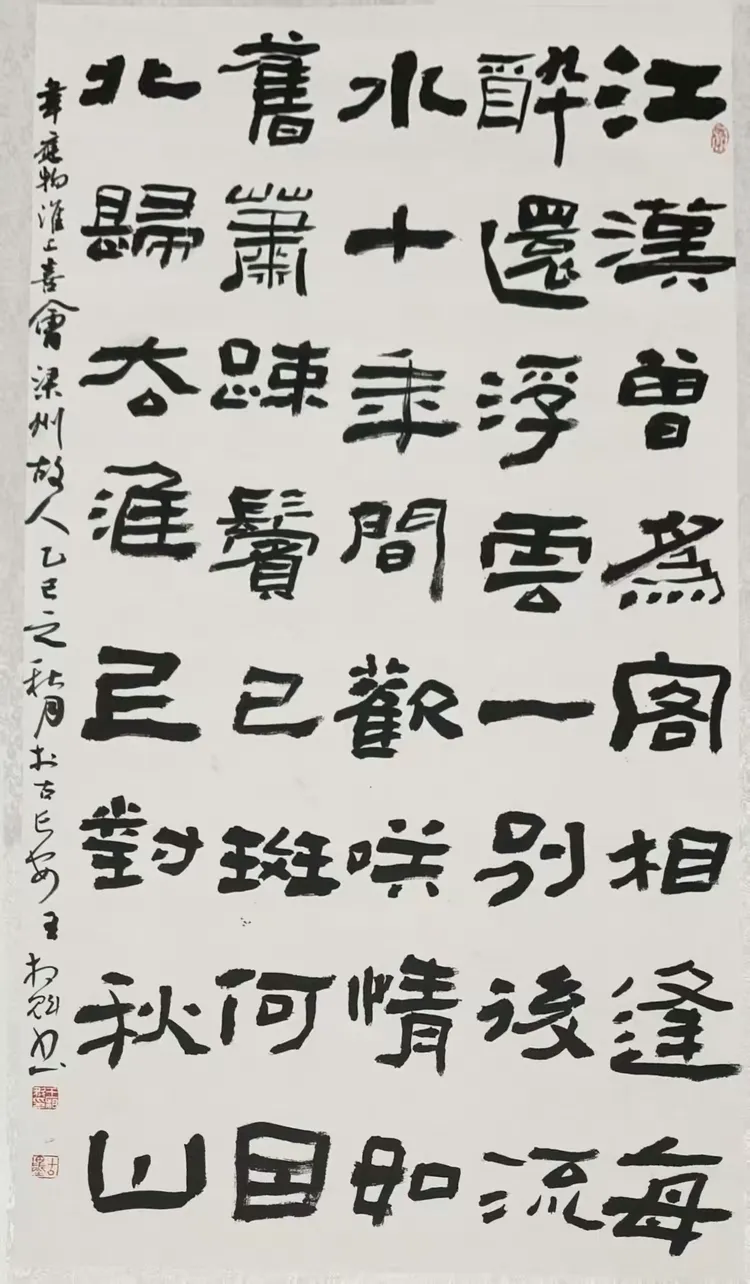 江漢曾爲客相逢每
酔還浮雲一別後流
水十年間歡咲情如
舊蕭踈鬢已斑何因
北歸去淮上對秋山
韋應物淮上喜會梁州故人乙巳之秋月於古長安王書